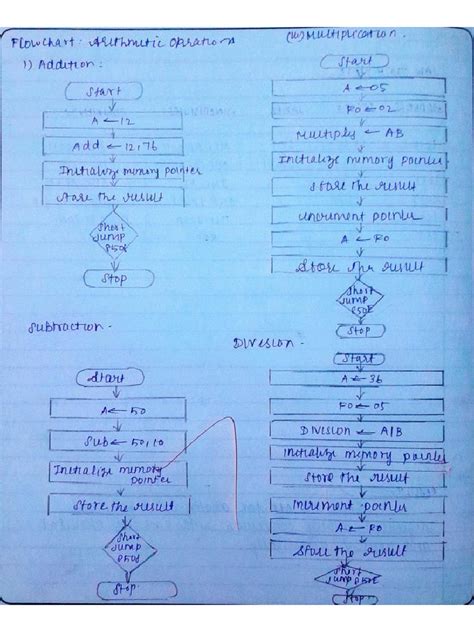 Flowchart: Arithmetic Operations
1) Addition:
Start
A ← 12
Add ← 12, 76
Initialize memory pointer
Store the result
Short
jump
850E
Stop
(iii) Multiplication.
Start
A ← 05
F0 ← 02
Multiply ← AB
Initialize memory pointer
Store the result
increment pointer
A ← F0
Store the result
Short
jump
850E
Stop
Subtraction -
Start
A ← 50
Sub ← 50, 10
Initialize memory
pointer
Store the result
Short
jump
Stop
Division -
Start
A ← 36
F0 ← 05
Division ← A/B
initialize memory pointer
Store the result
Increment pointer
A ← F0
Store the result
Short
jump 850E
Stop